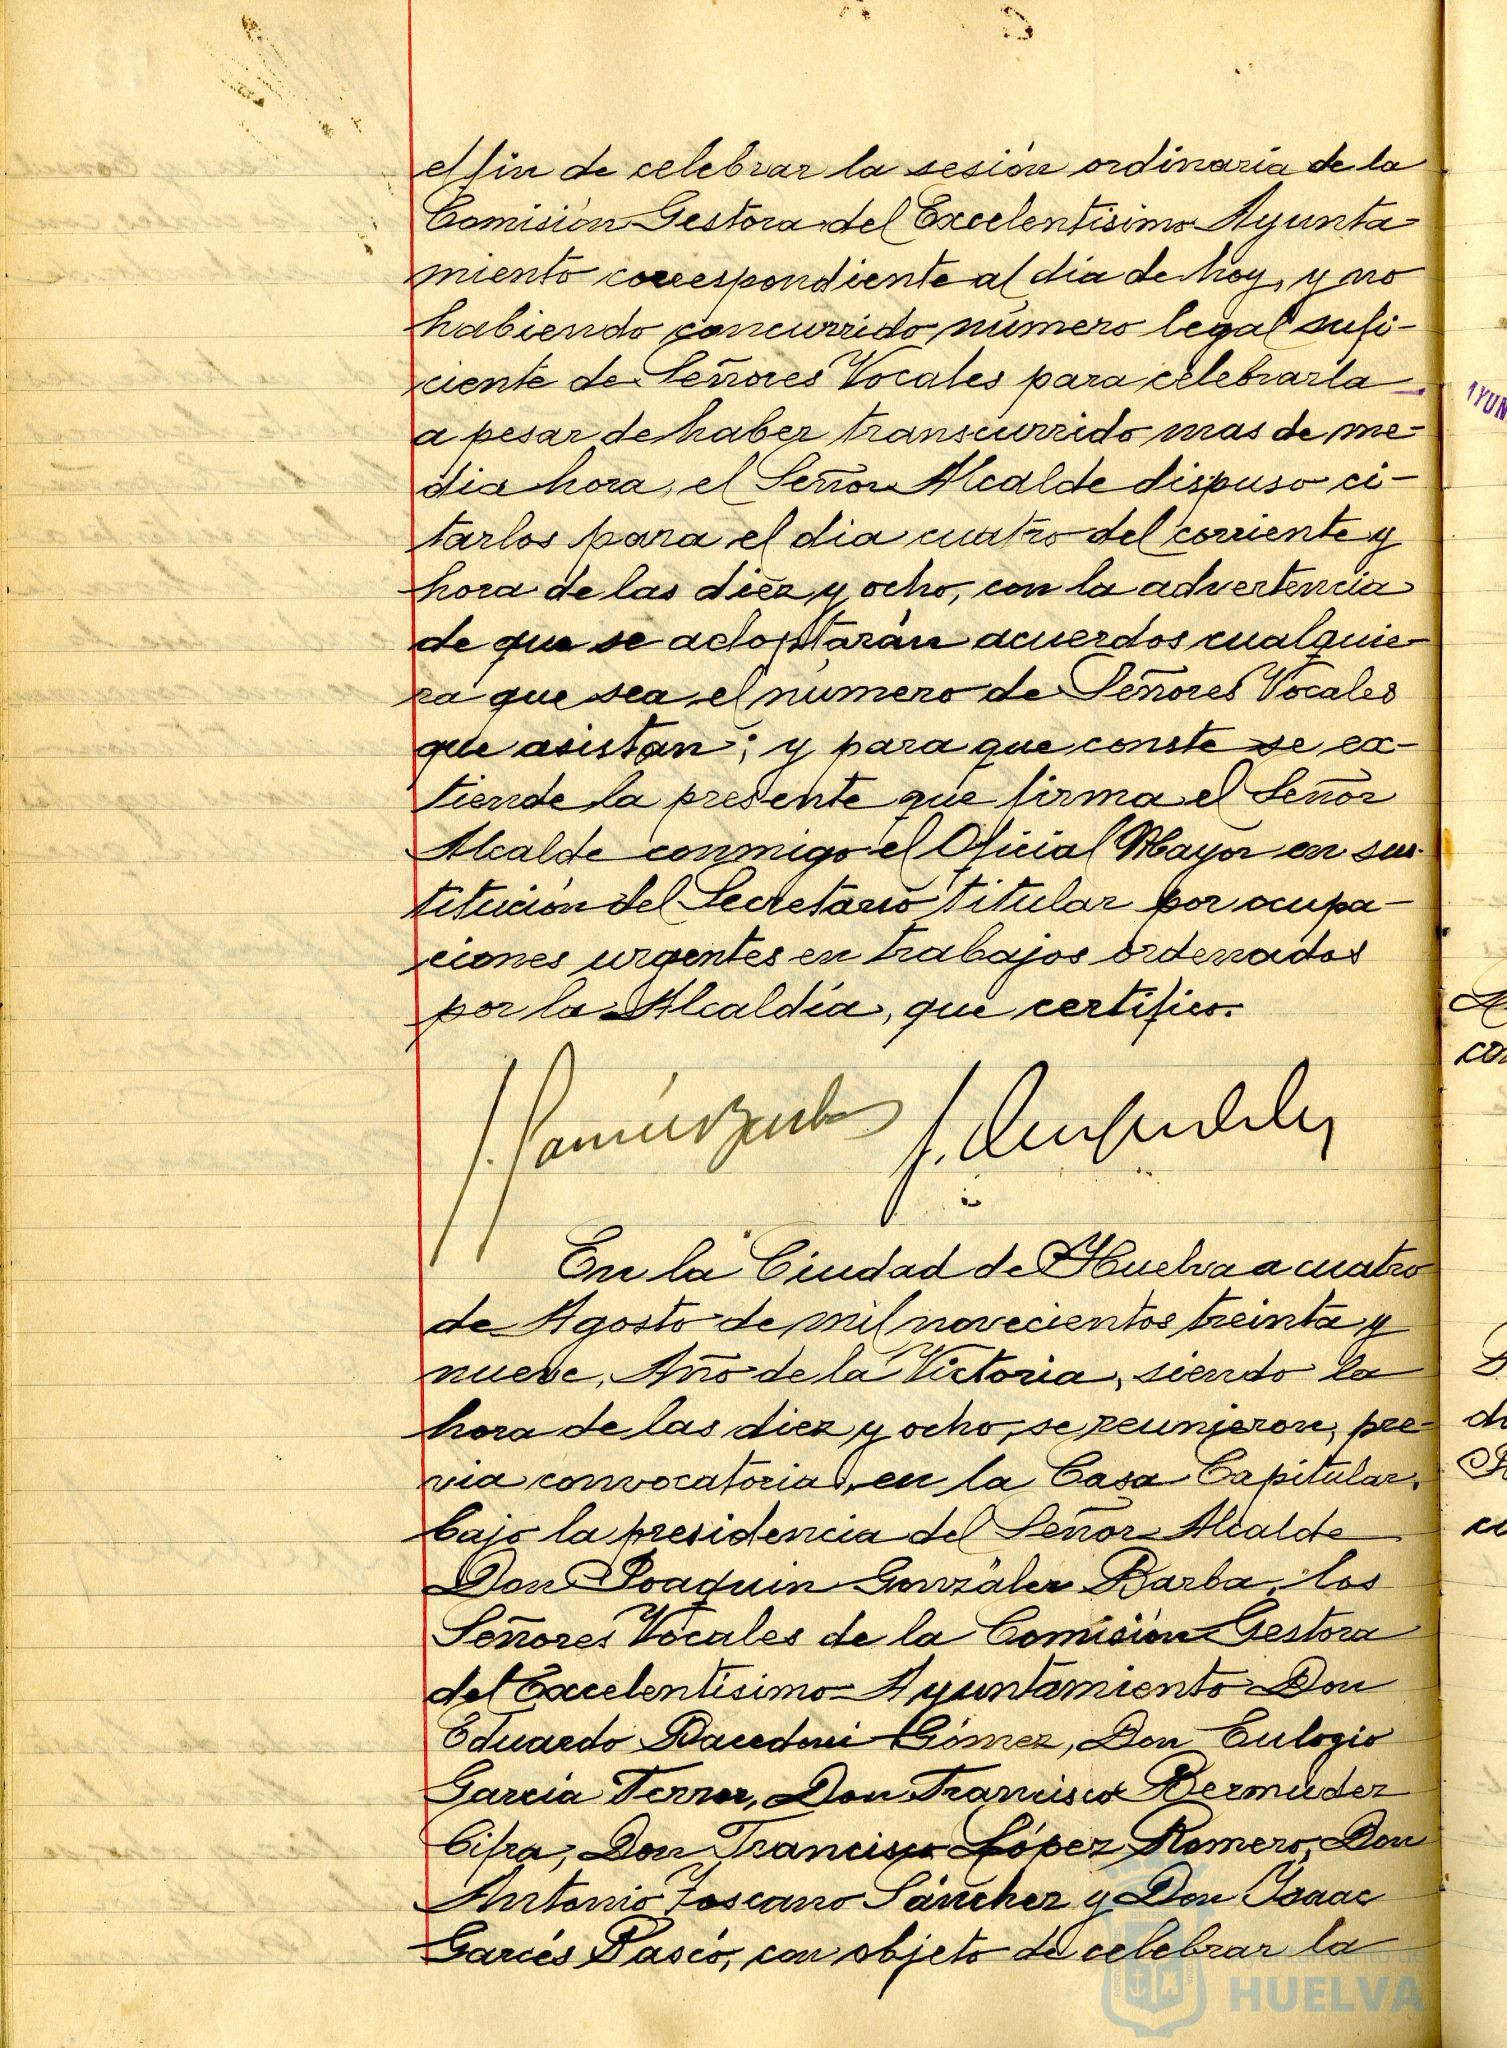 el fin de celebrar la sesión ordinaria de la
Comisión Gestora del Excelentisimo Ayunta-
miento correspondiente al dia de hoy, y no
habiendo concurrido número legal sufi-
ciente de Señores Vocales para celebrarla
a pesar de haber transcurrido mas de me-
dia hora, el Señor Alcalde dispuso ci-
tarlos para el dia cuatro del corriente y
hora de las diez y ocho, con la advertencia
de que se adoptarán acuerdos cualquie-
ra que sea el número de Señores Vocales
que asistan; y para que conste se ex-
tiende la presente que firma el Señor
Alcalde conmigo el Oficial Mayor en sus-
titución del Secretario titular por ocupa-
ciones urgentes en trabajos ordenados
por la Alcaldía, que certifico.
En la Ciudad de Huelva a cuatro
de Agosto de mil novecientos treinta y
nueve, Año de la Victoria, siendo la
hora de las diez y ocho, se reunieron, pre-
via convocatoria, en la Casa Capitular,
bajo la presidencia del Señor Alcalde
Don Joaquin González Barba, los
Señores Vocales de la Comisión Gestora
del Excelentísimo Ayuntamiento Don
Eduardo Gómez, Don Eulogio
García Ferrer, Don Francisco Bermúdez
Cifra, Don Francisco López Romero, Don
Antonio Toscano Sánchez y Don Isaac
Garcés Pascó, con objeto de celebrar la
Ayuntamiento de
HUELVA